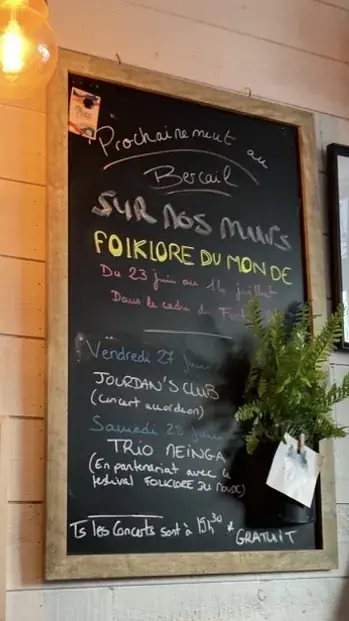 Prochainement au
Bercail
SUR NOS MURS
FOLKLORE DU MONDE
Du 23 juin au 14 juillet
Dans le cadre du
Vendredi 27
JOURDAN'S CLUB
(concert accordéon)
Samedi 28
TRIO NEINGA
(En partenariat avec le
festival FOLKLORE DU MONDE)
Ts les Concerts sont à 19h30 et GRATUIT